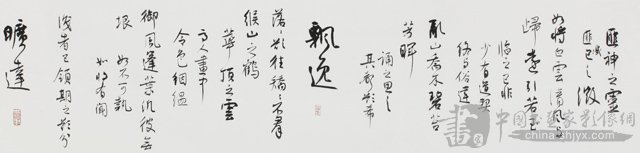 匪神之靈
匪機之微
如將白雲清風與
歸遠引若至
臨之已非
少有道契
終與俗違
亂山喬木碧苔
芳暉
誦之思之
其聲愈希
飄逸
落落欲往矯矯不群
緱山之鶴
華頂之雲
高人畫中
令色絪縕
御風蓬葉泛彼無
垠如不可執
如將有聞
識者已領期之愈分
曠達
中國書畫家影像網
www.chinashjyx.com